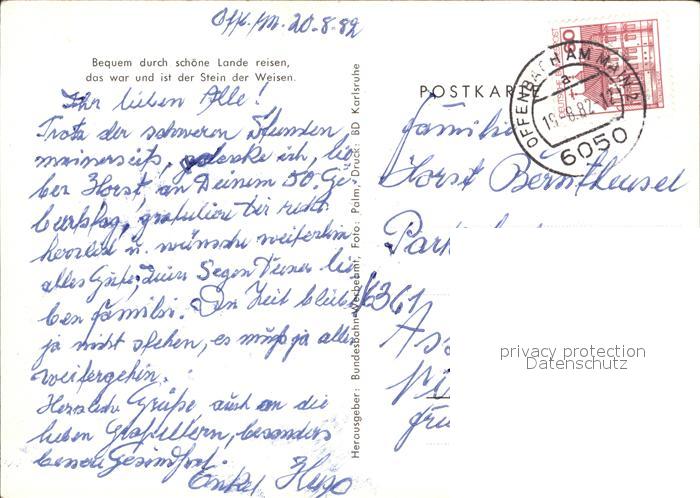 Off./M. 20.8.82
Bequem durch schöne Lande reisen,
das war und ist der Stein der Weisen.
Ihr lieben Alle!
Trotz der schweren Stunden,
meinerseits, gedenke ich, lie-
ber Horst, an Deinem 50. Ge-
burtstag, gratuliere Dir recht
herzlich u. wünsche weiterhin
alles Gute, zum Segen Deiner lie-
ben Familie. Die Zeit bleibt
ja nicht stehen, es muß ja alles
weitergehen.
Herzliche Grüße auch an die
lieben Großeltern, besonders
bessere Gesundheit.
Onkel Hugo
Herausgeber: Bundesbahn-Werbeamt, Foto: Palm, Druck: BD Karlsruhe
POSTKARTE
OFFENBACH AM MAIN 2
a
19.8.82-12
6050
60
Familie
Horst
Park
6361
privacy protection
Datenschutz